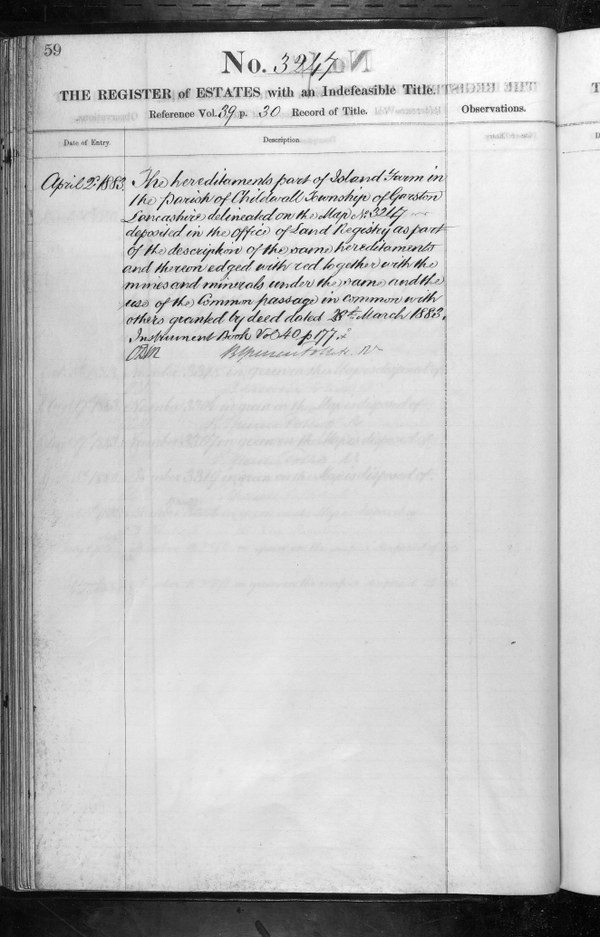 59
No. 3247
THE REGISTER of ESTATES with an Indefeasible Title.
Reference Vol. 39 p. 30 Record of Title.
Observations.
Date of Entry.
Description.
April 2d 1883.
The hereditaments part of Island Farm in
the parish of Childwall Township of Garston
Lancashire delineated on the Map No 3247
deposited in the office of Land Registry as part
of the description of the same hereditaments
and thereon edged with red together with the
mines and minerals under the same and the
use of the Common passage in common with
others granted by deed dated 28th March 1883.
Instrument Book Vol 40 p 177.